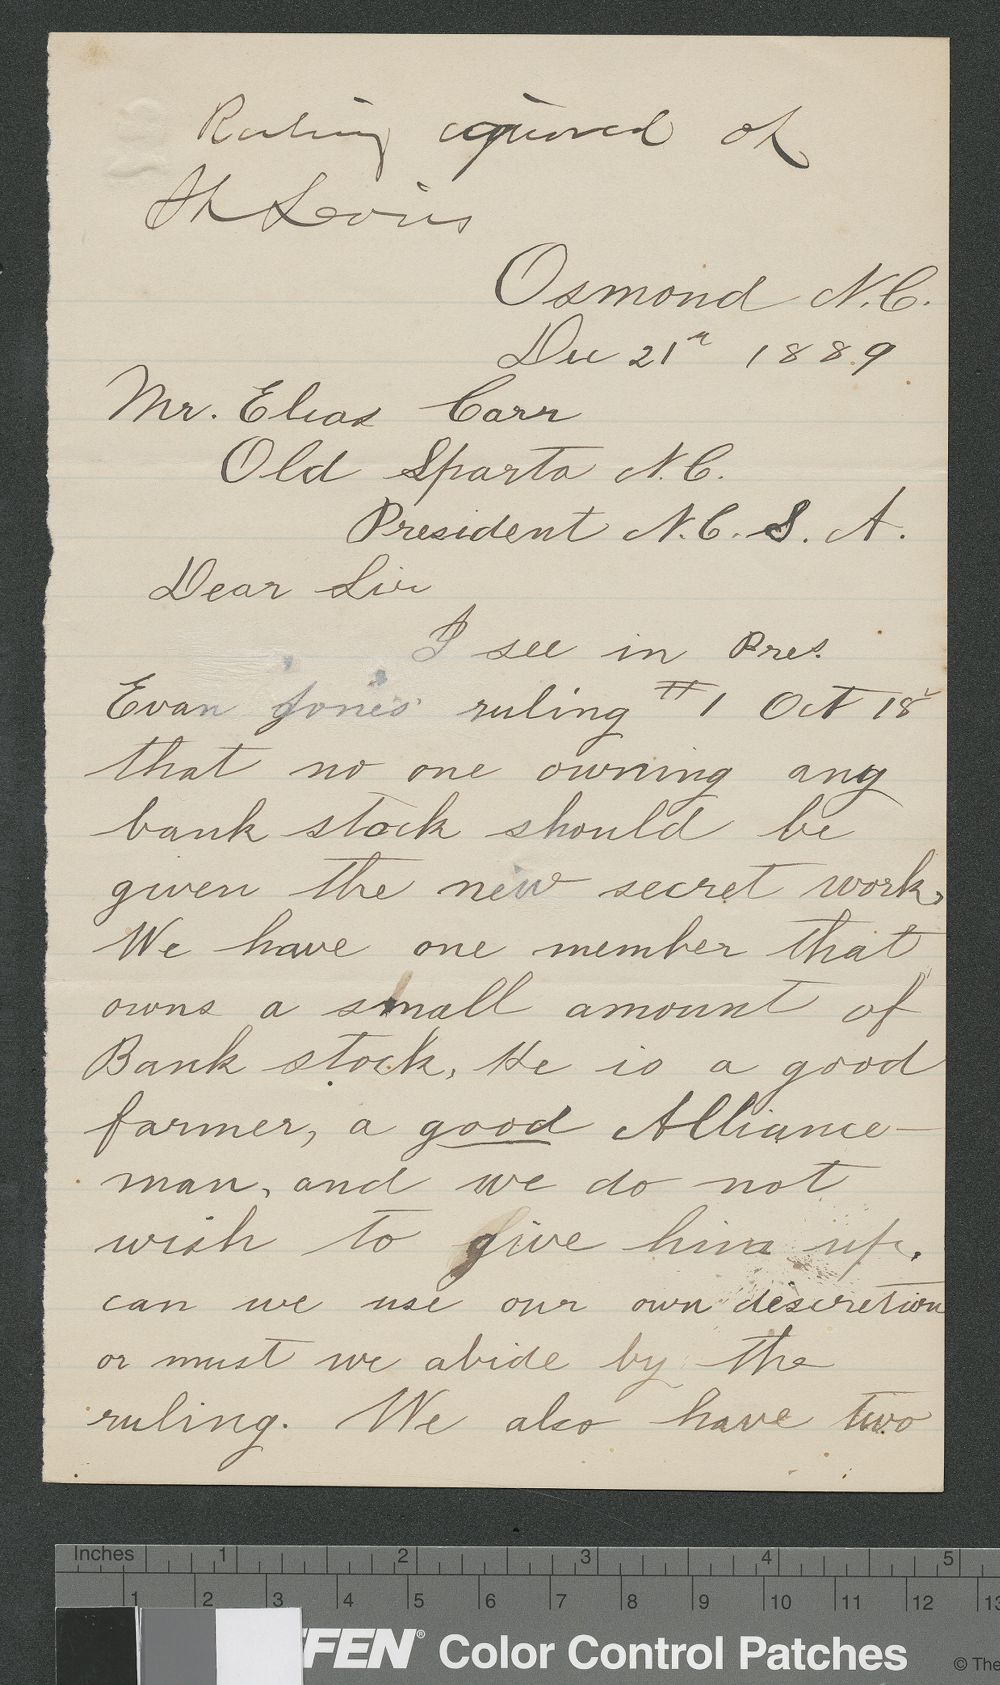 Ruling agreed at
St Louis
Osmond N.C.
Dec 21st 1889
Mr. Elias Carr
Old Sparta N.C.
President N.C. S. A.
Dear Sir
I see in Pres.
Evan Jones' ruling #1 Oct 18
that no one owning any
bank stock should be
given the new secret work,
We have one member that
owns a small amount of
Bank stock, He is a good
farmer, a good Alliance-
man, and we do not
wish to give him up.
can we use our own descretion
or must we abide by the
ruling. We also have two
Inches 1 2 3 4 5
1 2 3 4 5 6 7 8 9 10 11 12 13
FFEN® Color Control Patches © The